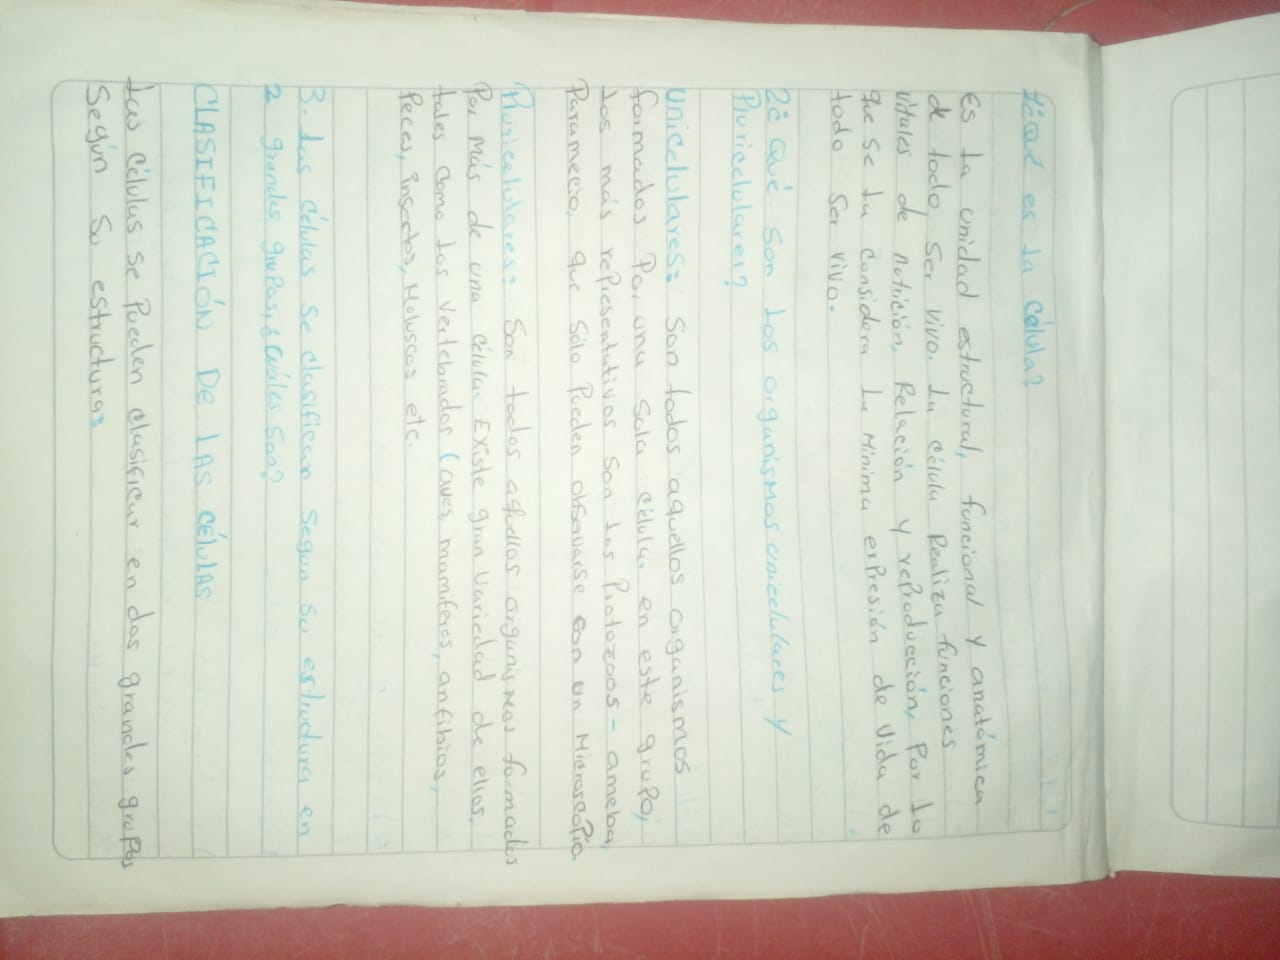 1¿Qué es la célula?
Es la unidad estructural, funcional y anatómica
de todo ser vivo. La célula Realiza funciones
vitales de nutrición, Relación y reproducción, Por lo
que se la considera la Minima expresión de vida de
todo Ser vivo.
2¿Qué son los organismos unicelulares y
Pluricelulares?
Unicelulares: son todos aquellos organismos
formados Por una sola célula. en este grupo,
los más representativos son los Protozoos - ameba,
Paramecio, que sólo Pueden observarse con un Microscopio.
Pluricelulares: Son todos aquellos organismos formados
Por más de una célula. Existe gran variedad de ellos,
tales como los vertebrados (aves, mamiferos, anfibios,
Peces, insectos, Moluscos etc.
3. Las células se clasifican según su estructura en
2 grandes grupos, ¿Cuáles son?
CLASIFICACIÓN DE LAS CÉLULAS
Las células se Pueden clasificar en dos grandes grupos
Según su estructura: